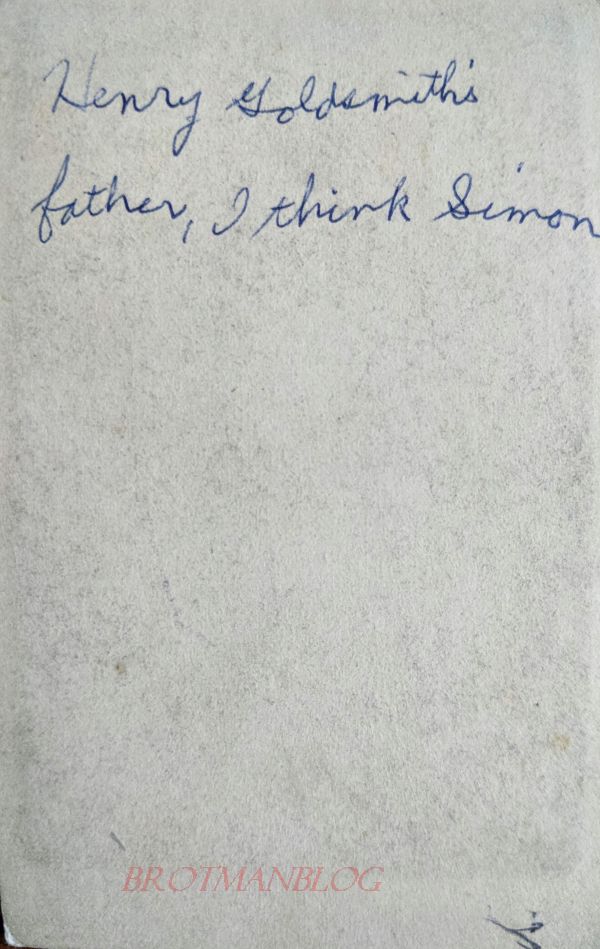 Henry Goldsmith's
father, I think Simon
BROTMANBLOG